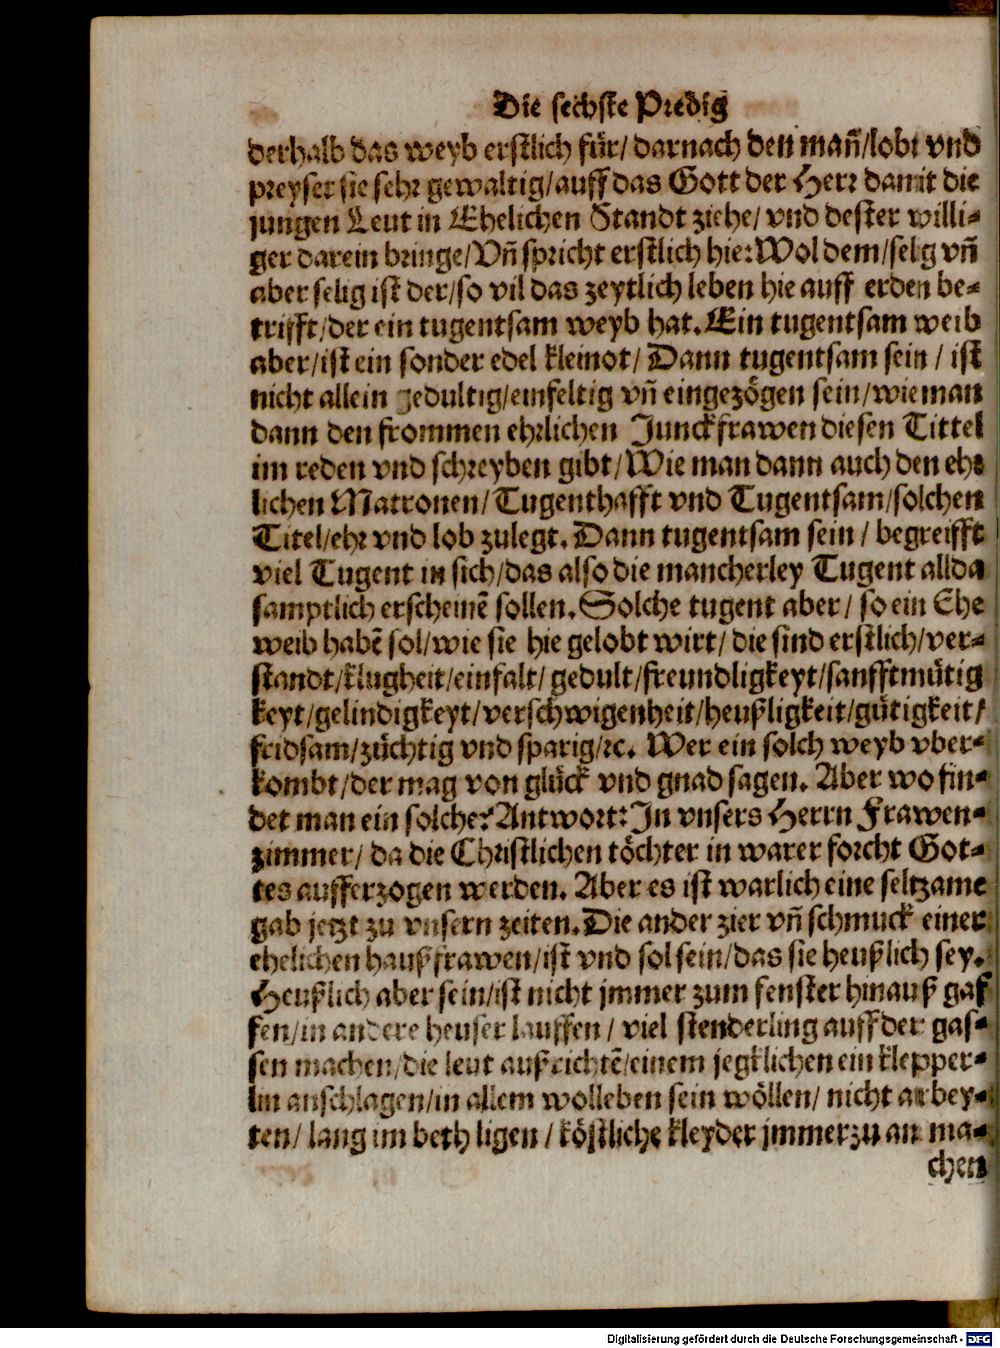 Die sechste Predig
derhalb das weyb erstlich für/ darnach den mañ/lobt vnd
preyset sie sehr gewaltig/auff das Gott der Herr damit die
jungen Leut in Ehelichen Standt ziehe/ vnd dester willi-
ger darein bringe/Vñ spricht erstlich hie: Wol dem/selg vñ
aber selig ist der/so vil das zeytlich leben hie auff erden be-
trifft/der ein tugentsam weyb hat. Ein tugentsam weib
aber/ist ein sonder edel kleinot/ Dann tugentsam sein / ist
nicht allein gedultig/einfeltig vñ eingezögen sein/wie man
dann den frommen ehrlichen Junckfrawen diesen Tittel
im reden vnd schreyben gibt/Wie man dann auch den ehr
lichen Matronen/ Tugenthafft vnd Tugentsam/solchen
Titel/ehr vnd lob zulegt. Dann tugentsam sein / begreifft
viel Tugent in sich/das also die mancherley Tugent allda
samptlich erscheinē sollen. Solche tugent aber/ so ein Ehe
weib habē sol/wie sie hie gelobt wirt/ die sind erstlich/ver-
standt/klugheit/einfalt/ gedult/freundligkeyt/sanfftmütig
keyt/gelindigkeyt/verschwigenheit/heußligkeit/gütigkeit/
fridsam/züchtig vnd sparig/ꝛc. Wer ein solch weyb vber-
kombt/der mag von glück vnd gnad sagen. Aber wo fin-
det man ein solche? Antwort: In vnsers Herrn Frawen-
zimmer/ da die Christlichen töchter in warer forcht Got-
tes aufferzogen werden. Aber es ist warlich eine seltzame
gab jetzt zu vnsern zeiten. Die ander zier vñ schmuck einer
ehelichen haußfrawen/ist vnd sol sein/das sie heußlich sey.
Heußlich aber sein/ist nicht jmmer zum fenster hinauß gaf
fen/in andere heuser lauffen/ viel stenderling auff der gas-
sen machen/die leut außrichtē/einem jegklichen ein klepper-
lin anschlagen/in allem wolleben sein wöllen/ nicht arbey-
ten/ lang im beth ligen / köstliche kleyder jmmerzu an ma-
chen
Digitalisierung gefördert durch die Deutsche Forschungsgemeinschaft - DFG